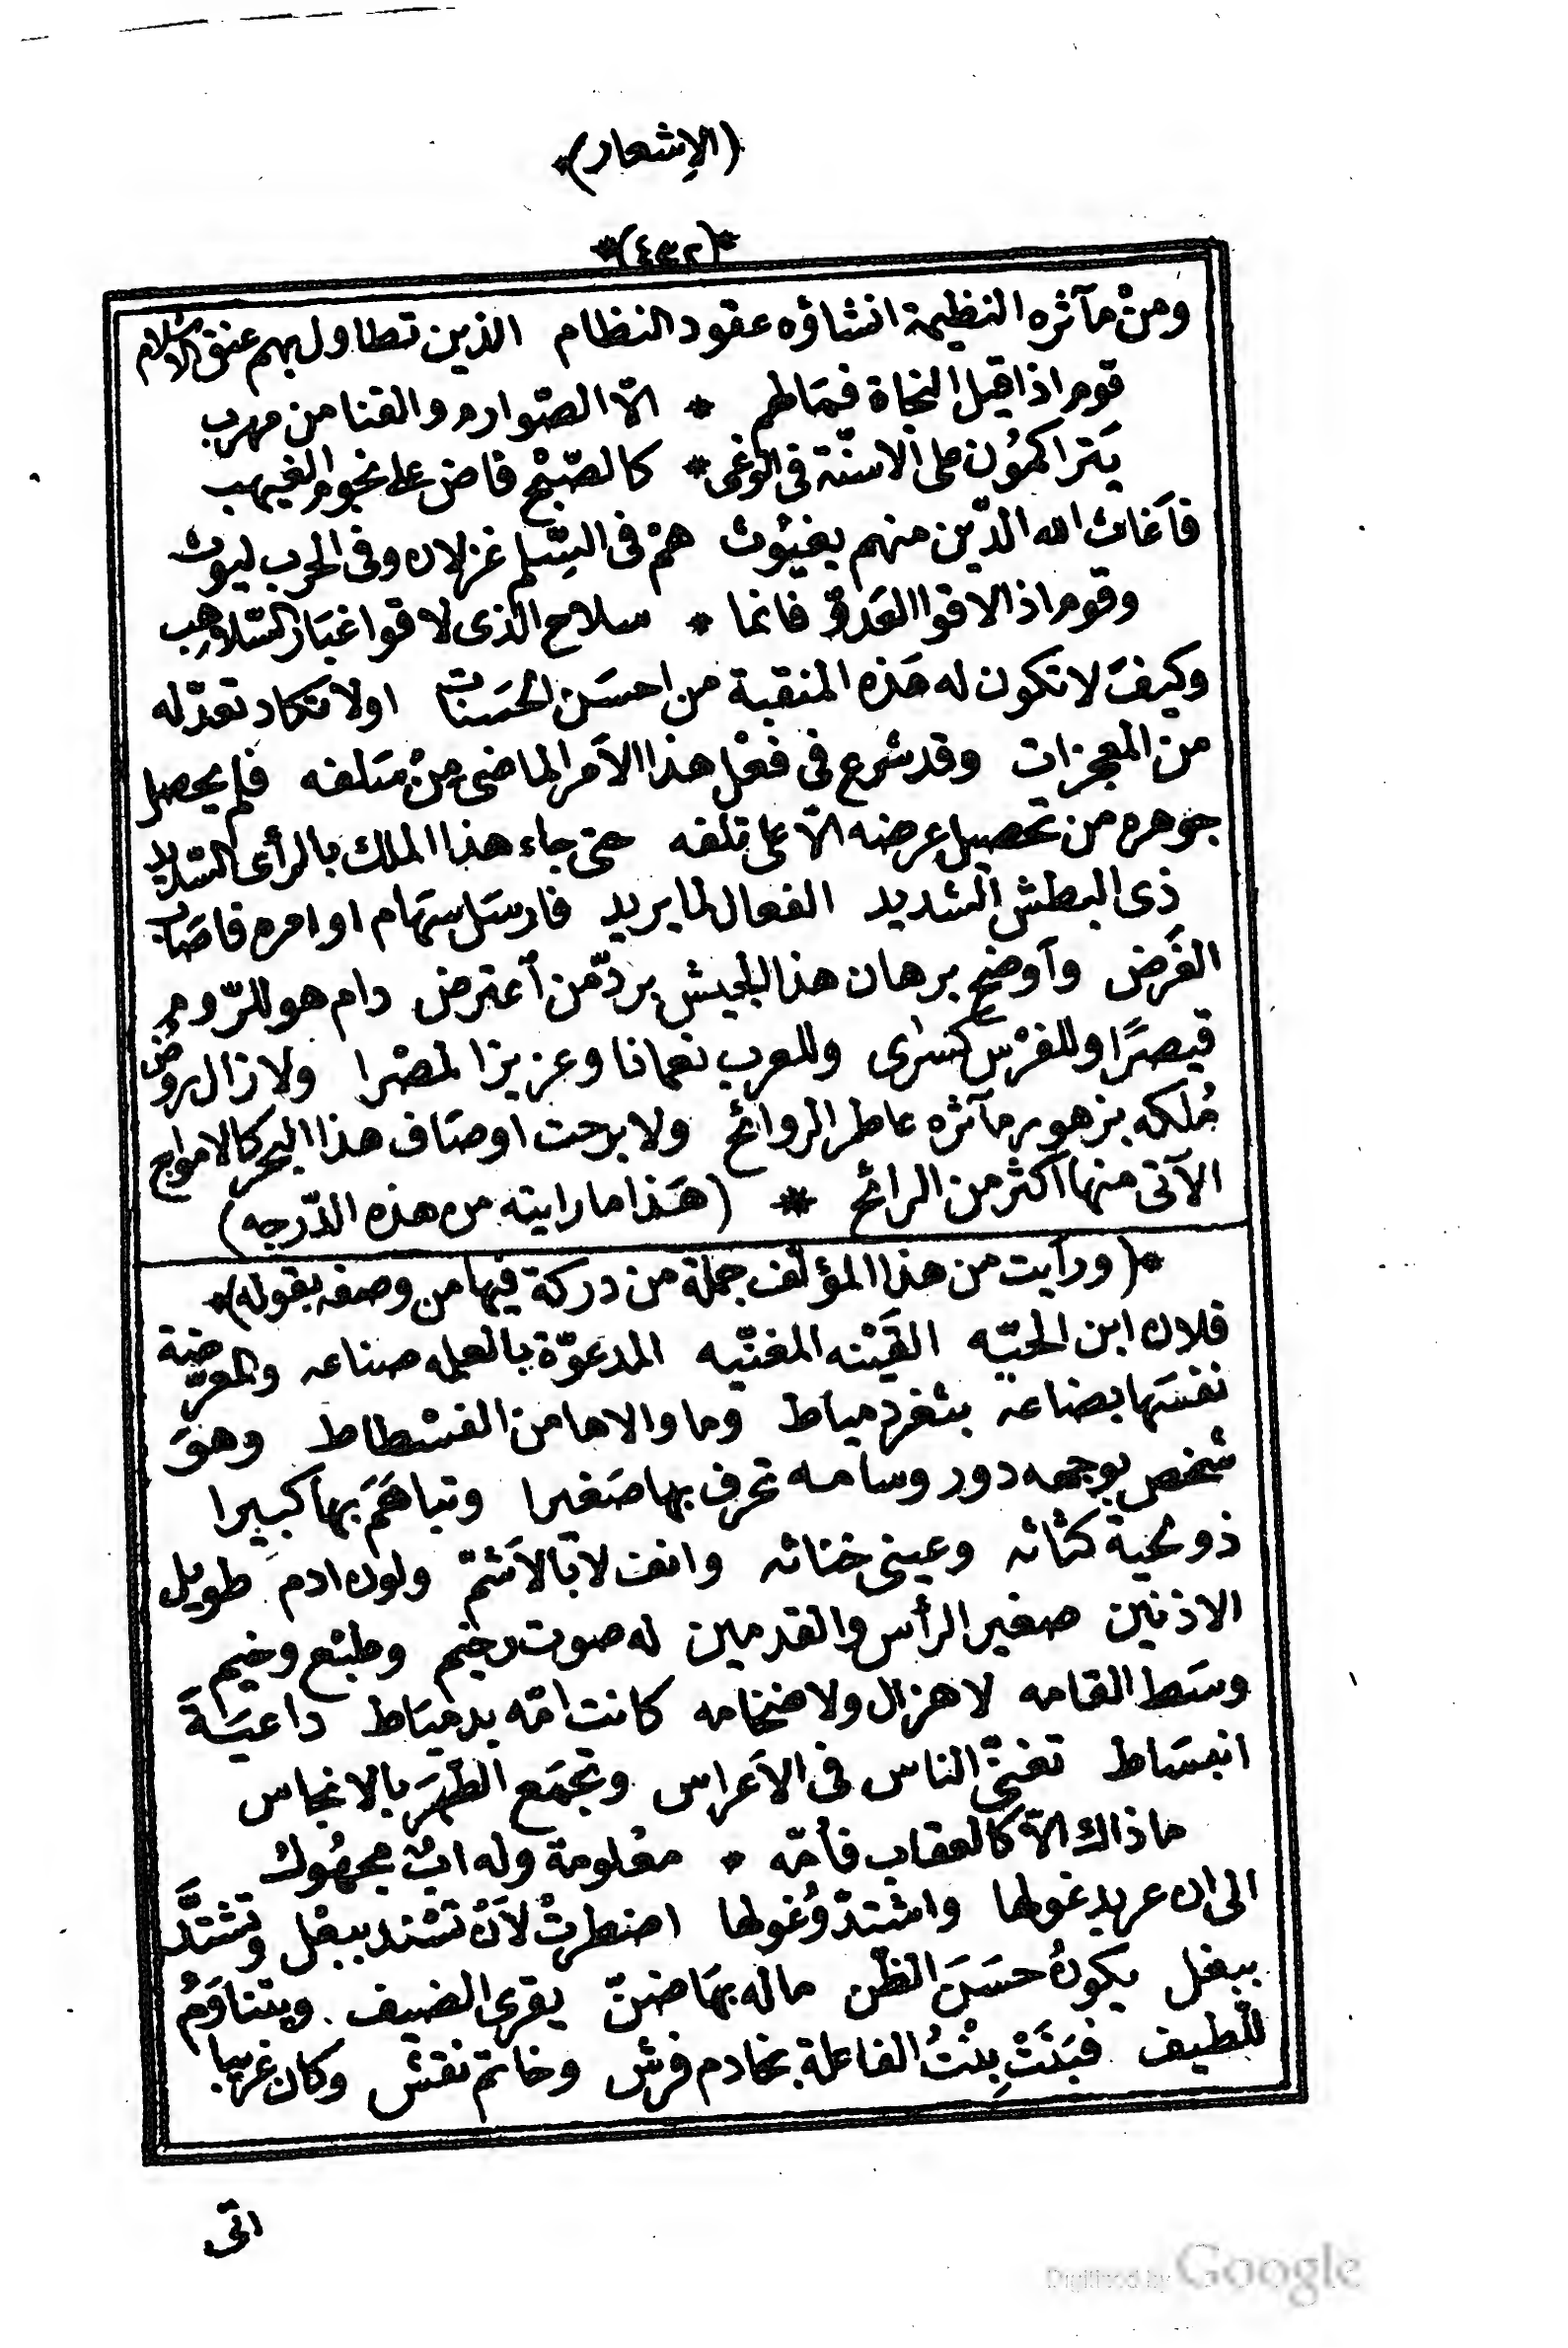 (الإشعار)*
*(٤٣٢)*
ومنْ مآثره النظيمة انشاؤه عقود النظام الذين تطاول بهم عنق الاسلام
قوم اذا قيل النجاة فمَالهم * الّا الصّوارم والقنا من مهرب
يَتراكمُون على الاسنّة فى الوغى * كالصّبْح فاض على نجوم الغيهب
فاَغاث الله الدّين منهم بغيُوث همْ فى السِّلم غزلان وفى الحرب ليوث
وقوم اذا لاقوا العَدوّ فانما * سلاح الذى لاقوا غبَار السّلاهِب
وكيفَ لا تكون له هَذه المنقبة من احسَن الحسَنات اولا تكاد تعدّ له
من المعجزات وقد شرع فى فعْل هذا الاَمر الماضى مِنْ سَلفه فلم يحصل
جوهره من تحصيل عرضه الّا على تلفه حتى جاء هذا الملك بالرأى السّديد
ذى البطش الشديد الفعال لما يريد فارسَل سهَام اوامره فاصَاب
الغَرض وآوضح برهان هذا الجيش بردّ من آعترض دام هو للرّوم
قيصرًا وللفرْس كسْرى وللعرب نعمانا وعزيزا لمصْرا ولا زال روض
مُلكه بزهور مآثره عاطر الروائح ولا برحت اوصَاف هذا البحر كالامواج
الآتى منها اكثر من الرائح * (هَذا ما رايته من هذه الدّرجه)
*(ورآيت من هذا المؤلّف جملة من دركة فيها من وصفه بقوله)*
فلان ابن الحيّه القَيْنه المغنّيه المدعوّة بالعمله صناعه والمعرّضة
نفسَها بضاعه بثغر دمياط وما والاها من الفسْطاط وهوَ
شخص بوجهه دور وسامه تحرف بها صَغيرا وتباهَمَ بها كبيرا
ذو لحية كثاثه وعينى خناثه وانف لا بالاَشمّ ولون ادم طويل
الاذنين صغير الرأس والقدمين له صوت رخيم وطبْع وخيم
وسَط القامه لا هزال ولا ضخامه كانت امّه بدميَاط داعيَةَ
انبسَاط تغنّى الناس فى الاَعراس وتجمَع الطهَرَ بالانجاس
ما ذاك الّا كالعقاب فأمّه * معْلومة وله ابٌ مجهُول
الى ان عربد غولها واشتدّ وُغولها اضطرتْ لاَنْ تسْتند ببعْل وتشتَدّ
ببغل يكونُ حسَنَ الظن ماله بهَا ضنّ يقرى الضيف ويتناوَمُ
للطيف فبَنَتْ بِنْتُ الفاعلة بخادم فرش وخاتم نقش وكان غريبا
اتى
Digitized by Google